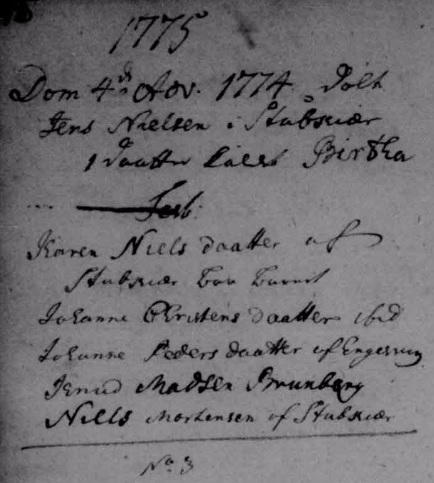 1775
Dom 4th Adv. 1774 Døbt
Jens Nielsen i Stubkiær
1 Daatter Kaldt Birtha
Test.
Karen Niels daatter af
Stubkiær bar Barnet
Johanne Christens daatter ibid
Johanne Peders daatter af
Madsen Brunberg
Niels Mortensen af Stubkiær
No 3